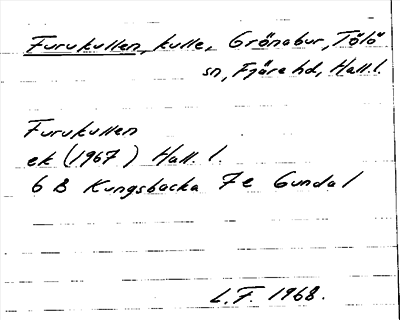 Furukullen, kulle, Grönabur, Tölö
sn, Fjäre hd, Hall. l.
Furukullen
ek (1967) Hall. l.
6 B Kungsbacka 7e Gundal
L.F. 1968.